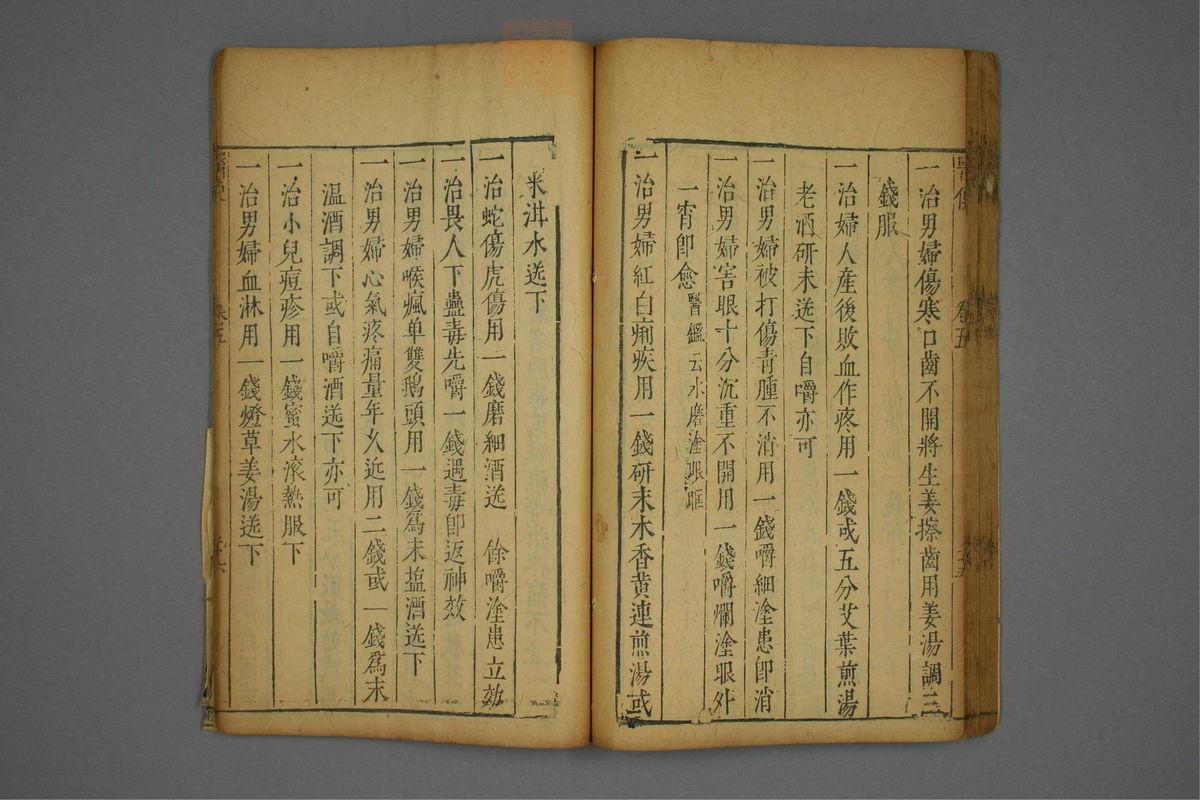 一治男婦傷寒口齒不開將生姜擦齒用姜湯調二
錢服
一治婦人產後敗血作疼用一錢或五分艾葉煎湯
老酒研末送下自嚼亦可
一治男婦被打傷青腫不消用一錢嚼細塗患卽消
一治男婦害眼十分沉重不開用一錢嚼爛塗眼外
一宵卽愈醫鑑云水磨塗眼眶
一治男婦紅白痢疾用一錢研末木香黃連煎湯或
米泔水送下
一治蛇傷虎傷用一錢磨細酒送 餘嚼塗患立効
一治畏人下蠱毒先嚼一錢遇毒卽返神效
一治男婦喉瘋单雙鵝頭用一錢爲末塩酒送下
一治男婦心氣疼痛量年久近用二錢或一錢爲末
温酒調下或自嚼酒送下亦可
一治小兒痘疹用一錢蜜水滚熱服下
一治男婦血淋用一錢燈草姜湯送下